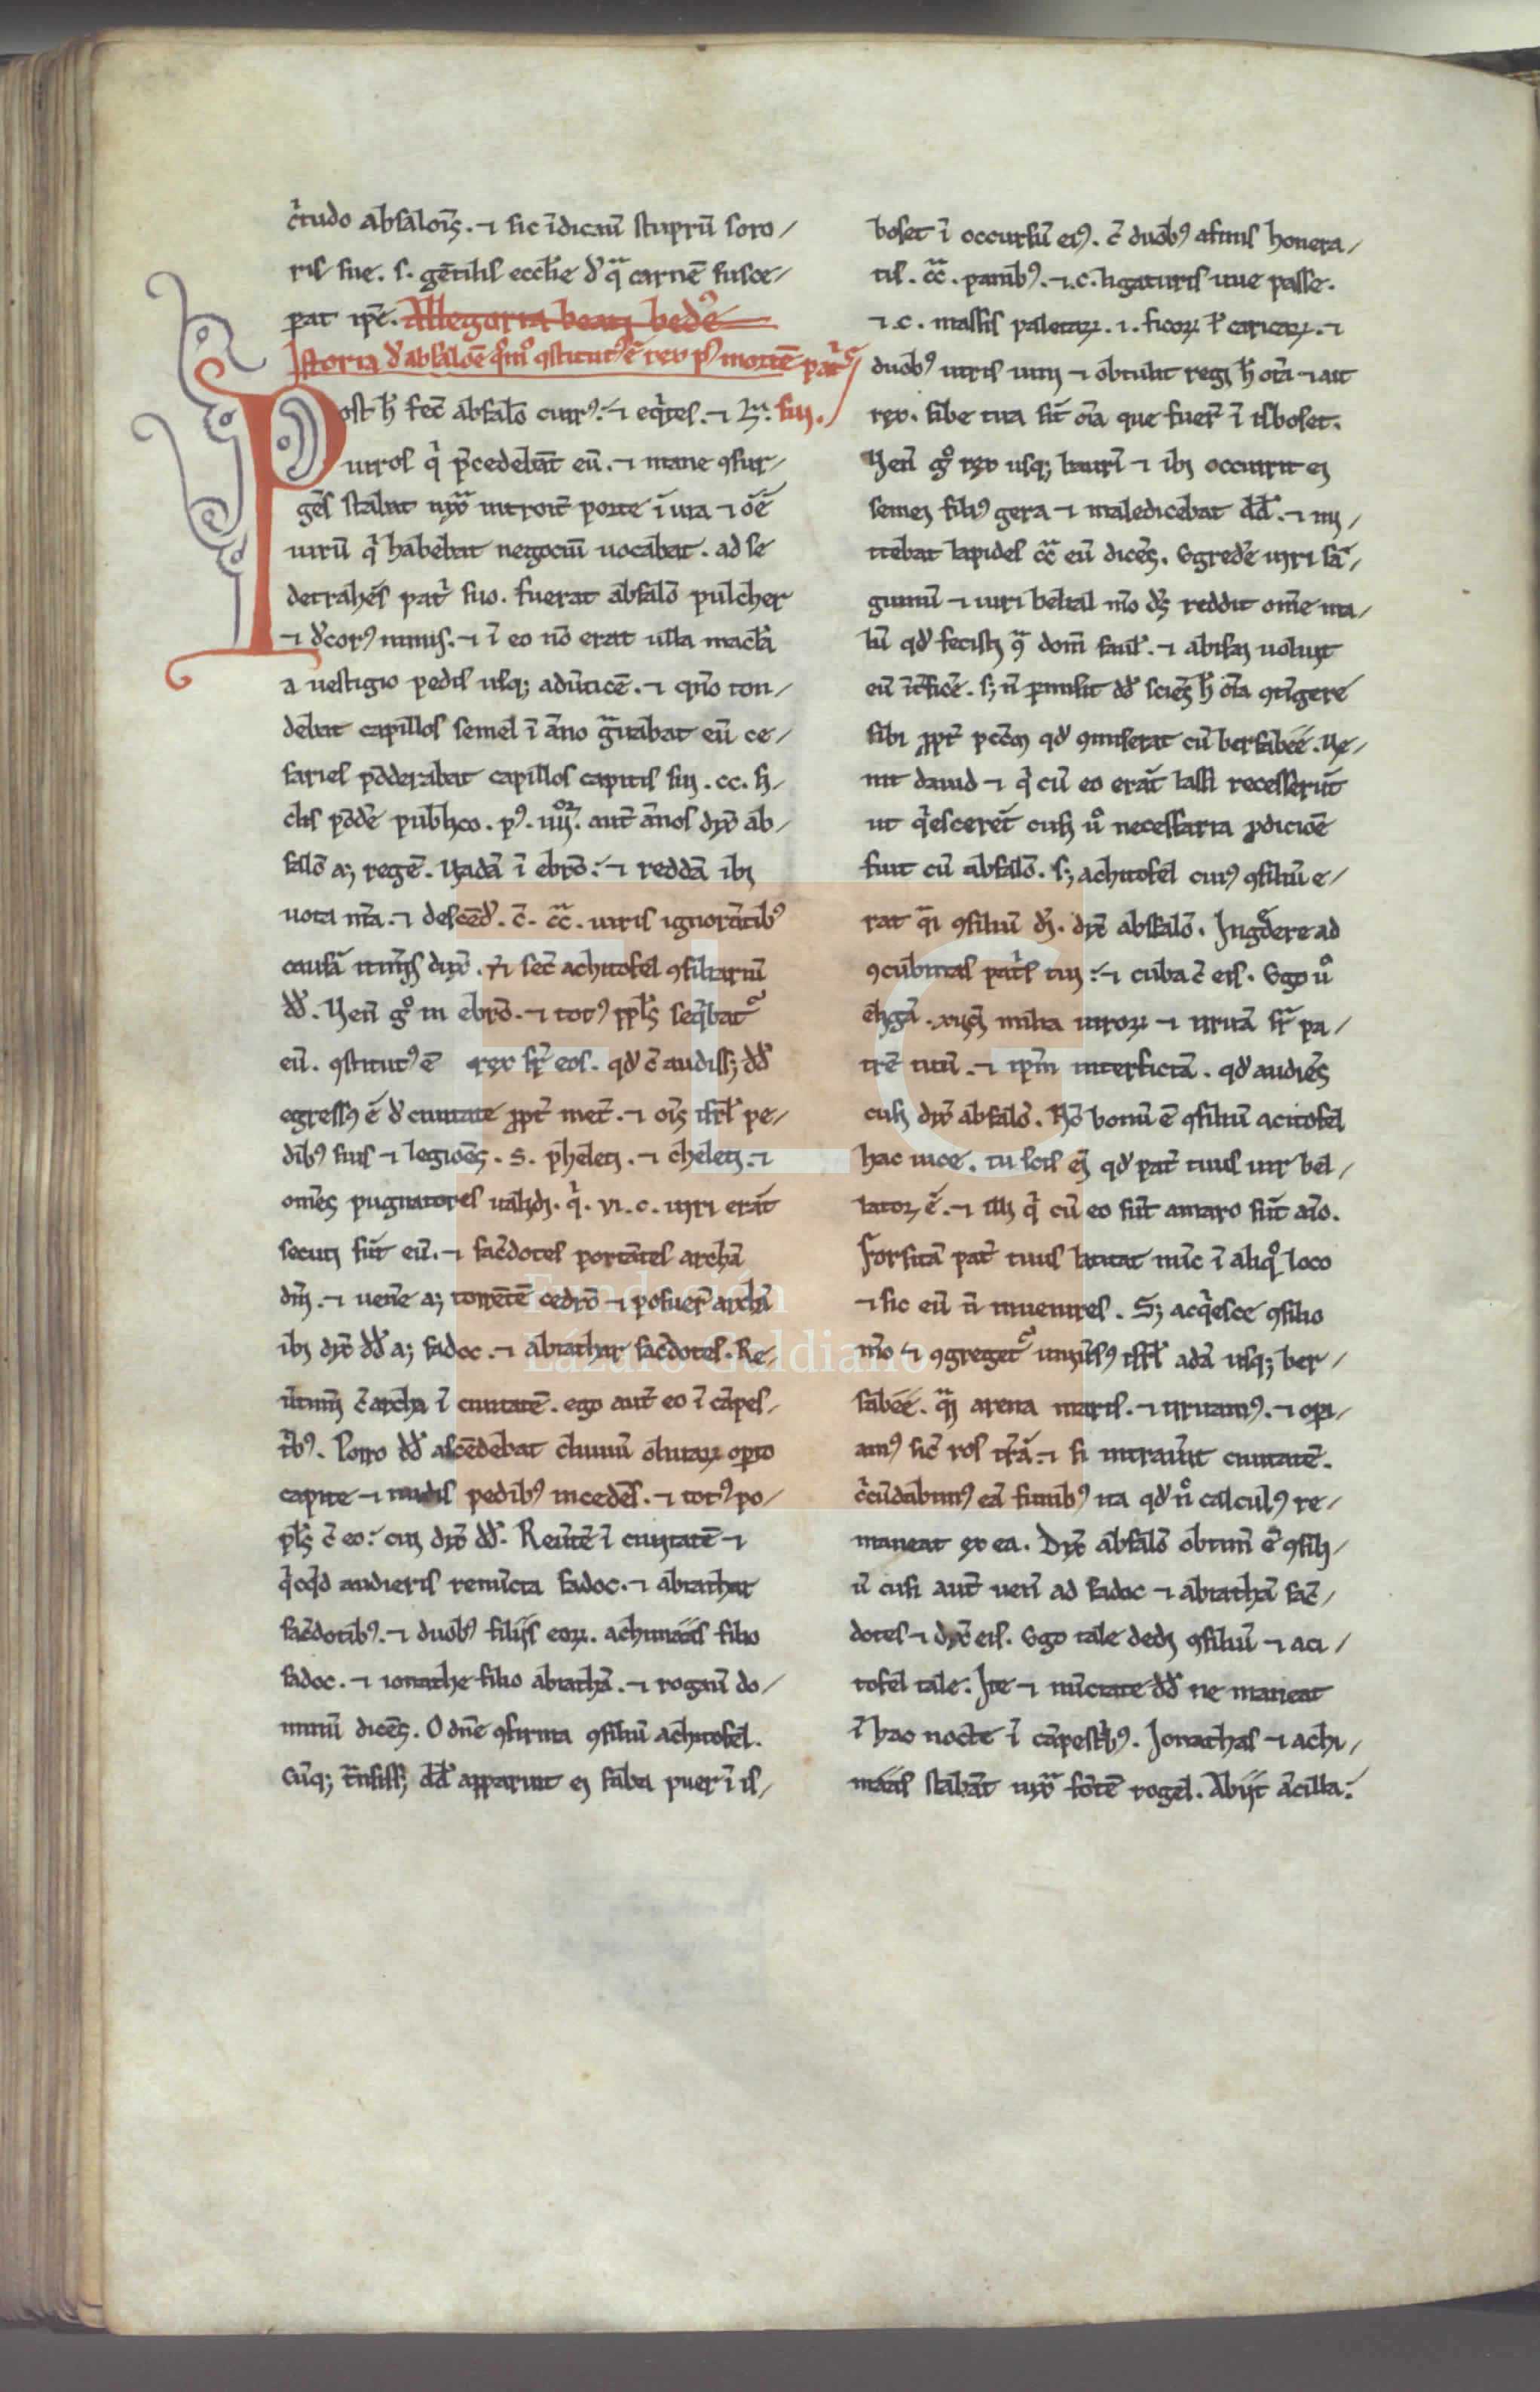 c̾tudo absalois̄. ⁊ sic ı̄dicauı̄ stuprū soro/
ris sue. s. gētilis eccłie đ qͣ carnē susce/
perat ipē. Allegoria beati bede
Istoria đ absalōe qͦmͦ ꝯstitutꝰ ē rex pꝰ mortē patⁱs
Post h̄ fec̄ absalō currꝰ. ⁊ eqⁱtes. ⁊ L. sui.
uiros qⁱ p̄cedebāt eū. ⁊ mane ꝯsur/
gēs stabat iuxͣ introit̄ porte ī uia ⁊ ōē
uirū qⁱ habebat negociū uocabat. ad se
detrahēs patⁱ suo. fuerat absalō pulcher
⁊ đcorꝰ nimis. ⁊ ī eo nō erat ulla macła
a uestigio pedis usq; aduticē. ⁊ qn̄o ton/
debat capillos semel ī āno gͣuabat eū ce/
saries pōderabat capillos capitis sui. cc. si/
clis pōdē publico. pꝰ. iiijͦʳ. aut̄ ānos dix̄ ab/
salō a; regē. Uadā ī ebrō. ⁊ reddā ibi
uota mͣ. ⁊ descēđ. c̄. ccͣ. uiris ignorātibꝰ
causā itin̄is dix̄. ⁊ı sec̄ achitofel ꝯsiliariū
đđ. Uen̄ gͦ in ebrō. ⁊ totꝰ ppłs seq̄bat᷑
eū. ꝯstitutꝰ ē rex sr̄ eos. qđ c̄ audiss; đđ
egressꝰ ē đ ciuitate ꝓpt̄ met̄. ⁊ ois̄ isrł pe/
dibꝰ suis ⁊ legiōes. s. pheleti. ⁊ cheleti. ⁊
omēs pugnatores ualidi. qⁱ. vi. c. uiri erāt
secuti sūt eū. ⁊ sac̄dotes portātes archā
dn̄i. ⁊ uen̄e a; torrētē cedrō ⁊ posuer̄ archā
ibi dix̄ đđ a; sadoc. ⁊ abiathar sac̄dotes. Re/
ūtimī c̄ archa ī ciuitatē. ego aut̄ eo ī cāpes/
tⁱbꝰ. Porro đđ ascēdebat cliuū oliuaꝝ opto
capite ⁊ nudis pedibꝰ incedēs. ⁊ totꝰ po/
płs c̄ eo. cui dix̄ đđ. Reūtē ī ciuitatē ⁊
qⁱcqͥd audieris renūcia sadoc. ⁊ abiathar
sac̄dotibꝰ. ⁊ duobꝰ filijs eoꝝ. achimaas filio
sadoc. ⁊ ionathe filio abiathā. ⁊ rogauı̄ do/
minū dicēs. O dn̄e ꝯfirma ꝯsiliū achitofel.
Cūq; t̄nsiss; đđ apparuit ei saba puer ī is/
boset ī occursū eiꝰ. c̄ duobꝰ asinis honera/
tis. ccͣ. panibꝰ. ⁊.c. ligaturis uue passe.
⁊.c. massis palataꝝ. ⁊. ficoꝝ ł caricaꝝ. ⁊
duobꝰ utris uini ⁊ obtulit regi h̄ oı̄a ⁊ ait
rex. sibe tua sīt oı̄a que fuer̄ ī isboset.
Uen̄ gͦ rex usq; baurī ⁊ ibi occurrit ei
semei filiꝰ gera ⁊ maledicebat đđ. ⁊ mi/
ttebat lapides cͣ eū dicēs. Egrede uiri sā/
guinū ⁊ uiri belial mͦo ds̄ reddit ome ma/
lū qđ fecisti qͣ dom̄ sauł. ⁊ abisai uoluit
eū īt̄ficē. s; ū pmisit đđ sciēs h̄ oı̄a ꝯtīgere
sibi ꝓpt̄ pc̄cm qđ ꝯmiserat cū bersabee. Ue/
nit dauid ⁊ qⁱ cū eo erāt lassi recesserūt
ut qⁱescerēt cusi uͦ necessaria ꝓdiciōē
fuit cū absalō. s; achitofel cuiꝰ ꝯsiliū e/
rat q̄i ꝯsiliū dī. dix̄ absalō. Ingͣdere ad
ꝯcubinas patⁱs tui. ⁊ cuba c̄ eis. Ego uͦ
eligā. xijci milia uiroꝝ ⁊ irruā sr̄ pa/
trē tuū. ⁊ ipm̄ interficiā. qđ audiēs
cusi dix̄ absalō. Nō bonū ē ꝯsiliū acitofel
hac uice. tu scis ei qđ pat̄ tuus uir bel/
lator ē. ⁊ illi qⁱ cū eo sūt amaro sūt aı̄o.
Forsitā pat̄ tuus latitat nūc ī aliqͦ loco
⁊ sic eū ū inuenires. S; acqⁱesce ꝯsilio
mͦo ⁊ ꝯgreget᷑ uniūsꝰ isrł adā usq; ber/
sabee. qͣi arena maris. ⁊ irruamꝰ. ⁊ opi/
amꝰ sic̄ ros tr̄ā. ⁊ si intrauit̄ ciuitatē.
cⁱcūdabimꝰ eā funibꝰ ita qđ nͦ calculꝰ re/
maneat ex ea. Dix̄ absalō obtimī ē ꝯsili/
ū cusi aut̄ uen̄ ad sadoc ⁊ abiathā sac̄/
dotes ⁊ dix̄ eis. Ego tale dedi ꝯsiliū ⁊ aci/
tofel tale. Ite ⁊ nūctate đđ ne maneat
ī hac nocte ī cāpestⁱbꝰ. Jonathas ⁊ achi/
maas stabāt iuxͣ fōtē rogel. Abijt ācilla.
FLG
Fundación
Lázaro Galdiano